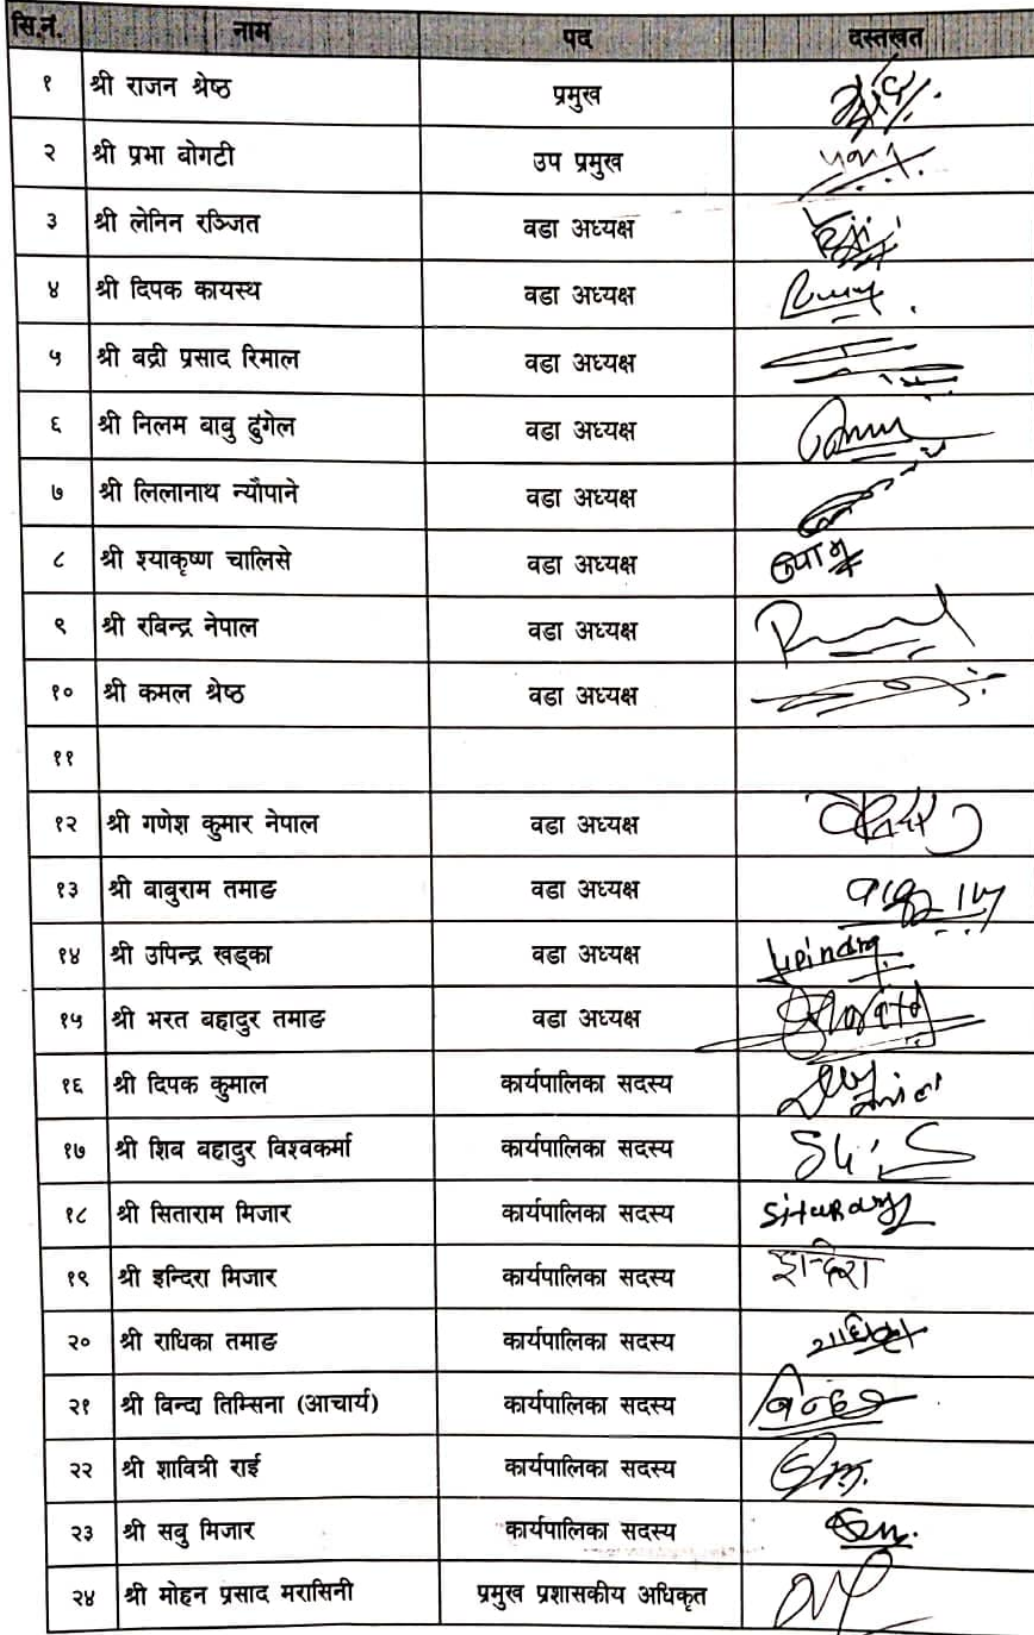 सि.नं. नाम पद दस्तखत
१ श्री राजन श्रेष्ठ प्रमुख
२ श्री प्रभा बोगटी उप प्रमुख
३ श्री लेनिन रञ्जित वडा अध्यक्ष
४ श्री दिपक कायस्थ वडा अध्यक्ष
५ श्री बद्री प्रसाद रिमाल वडा अध्यक्ष
६ श्री निलम बाबु ढुंगेल वडा अध्यक्ष
७ श्री लिलानाथ न्यौपाने वडा अध्यक्ष
८ श्री श्याकृष्ण चालिसे वडा अध्यक्ष
९ श्री रबिन्द्र नेपाल वडा अध्यक्ष
१० श्री कमल श्रेष्ठ वडा अध्यक्ष
११
१२ श्री गणेश कुमार नेपाल वडा अध्यक्ष
१३ श्री बाबुराम तमाङ वडा अध्यक्ष
१४ श्री उपिन्द्र खड्का वडा अध्यक्ष upindra
१५ श्री भरत बहादुर तमाङ वडा अध्यक्ष
१६ श्री दिपक कुमाल कार्यपालिका सदस्य
१७ श्री शिब बहादुर विश्वकर्मा कार्यपालिका सदस्य
१८ श्री सिताराम मिजार कार्यपालिका सदस्य
१९ श्री इन्दिरा मिजार कार्यपालिका सदस्य इन्दिरा
२० श्री राधिका तमाङ कार्यपालिका सदस्य राधिका
२१ श्री विन्दा तिम्सिना (आचार्य) कार्यपालिका सदस्य
२२ श्री शावित्री राई कार्यपालिका सदस्य
२३ श्री सबु मिजार कार्यपालिका सदस्य
२४ श्री मोहन प्रसाद मरासिनी प्रमुख प्रशासकीय अधिकृत